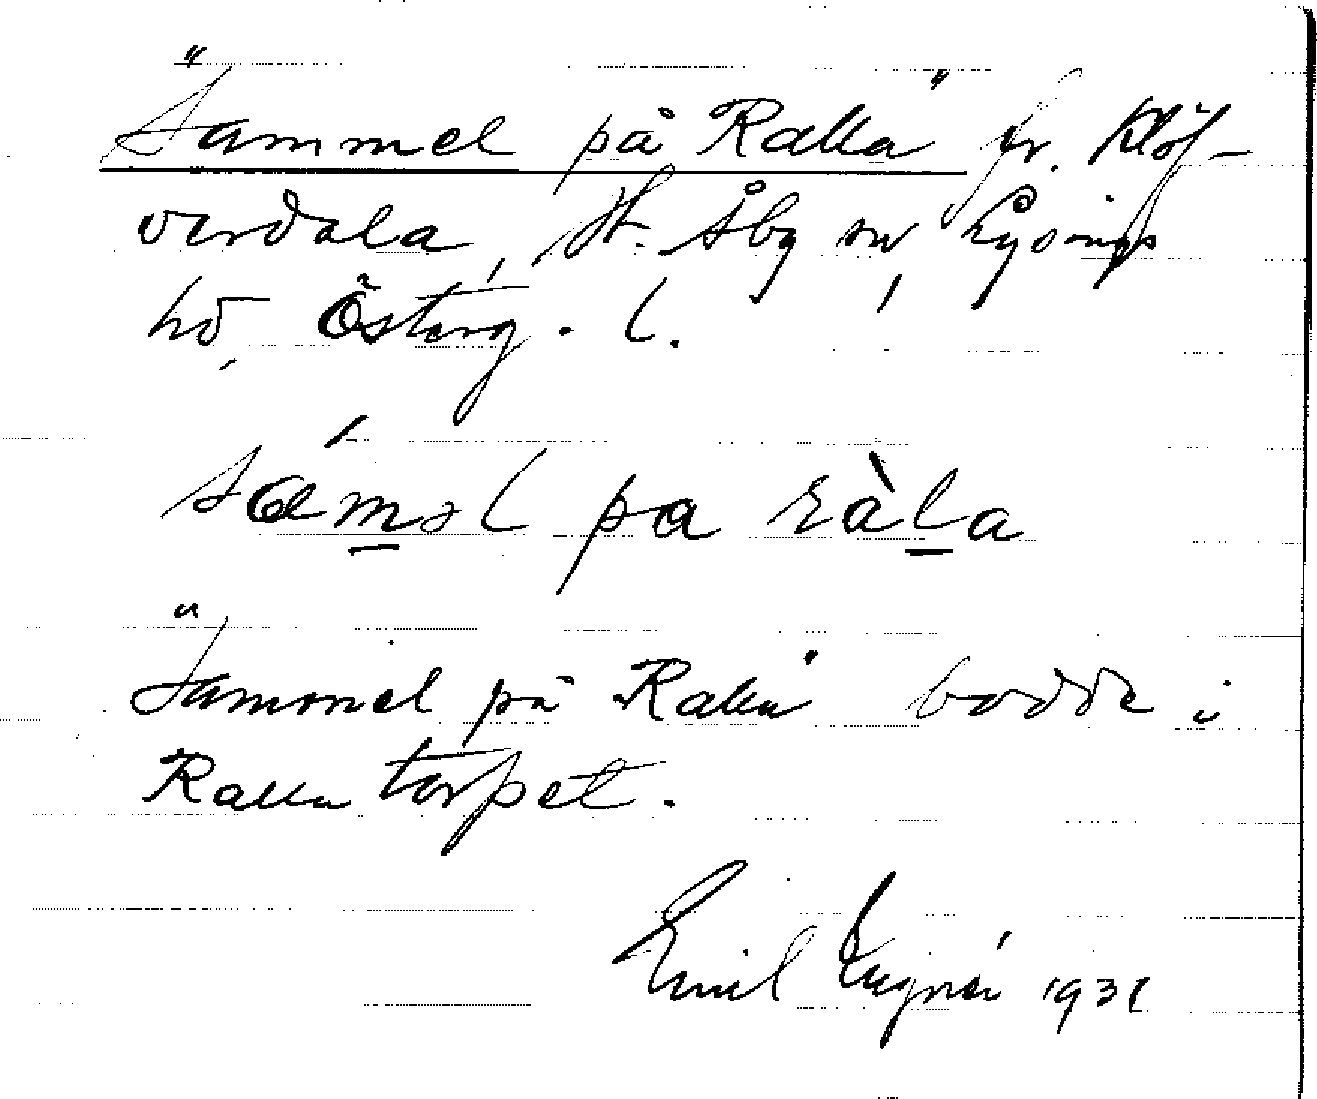 "Sammel på Ralla" fr. Klöf-
verdala, St. Åby sn, Lysings
hd, Österg. l.
sɑ́məl pa ràla
"Sammel på Ralla" bodde i
Rallatorpet.
Emil 1931